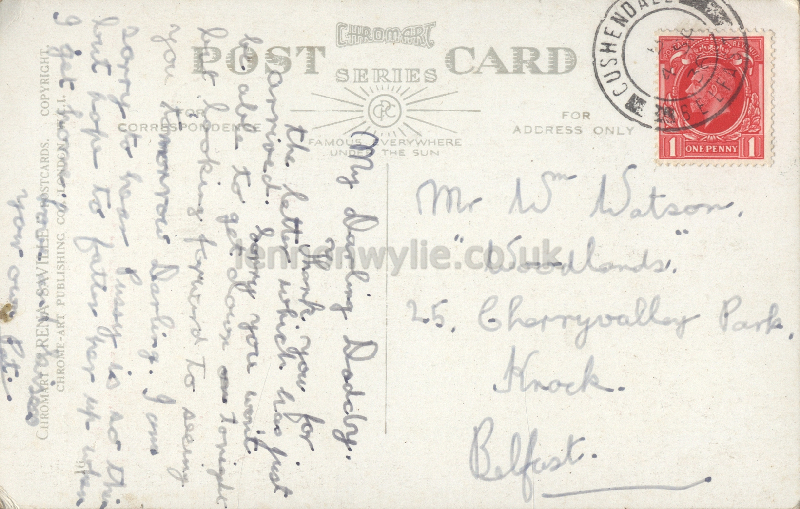 CHROMART
POST CARD
SERIES
FOR
CORRESPONDENCE
FOR
ADDRESS ONLY
CPC
FAMOUS EVERYWHERE
UNDER THE SUN
CUSHENDALL
ONE PENNY
1 1
Mr Wm Watson.
"Woodlands."
25, Cherryvalley Park,
Knock.
Belfast.
My Darling Daddy.
Thank you for
the letter which has just
arrived. Sorry you won't
be able to get down tonight
but looking forward to seeing
you tomorrow Darling. I am
sorry to hear Pussy is so thin
but hope to fatten her up when
I get home.
your own Pet.
CHROMART RENA SAVILLE POSTCARDS. COPYRIGHT.
CHROME-ART PUBLISHING CO., LONDON
lennonwylie.co.uk